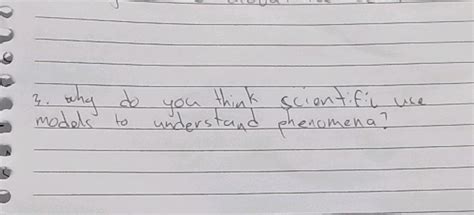 3. why do you think scientific use
models to understand phenomena?